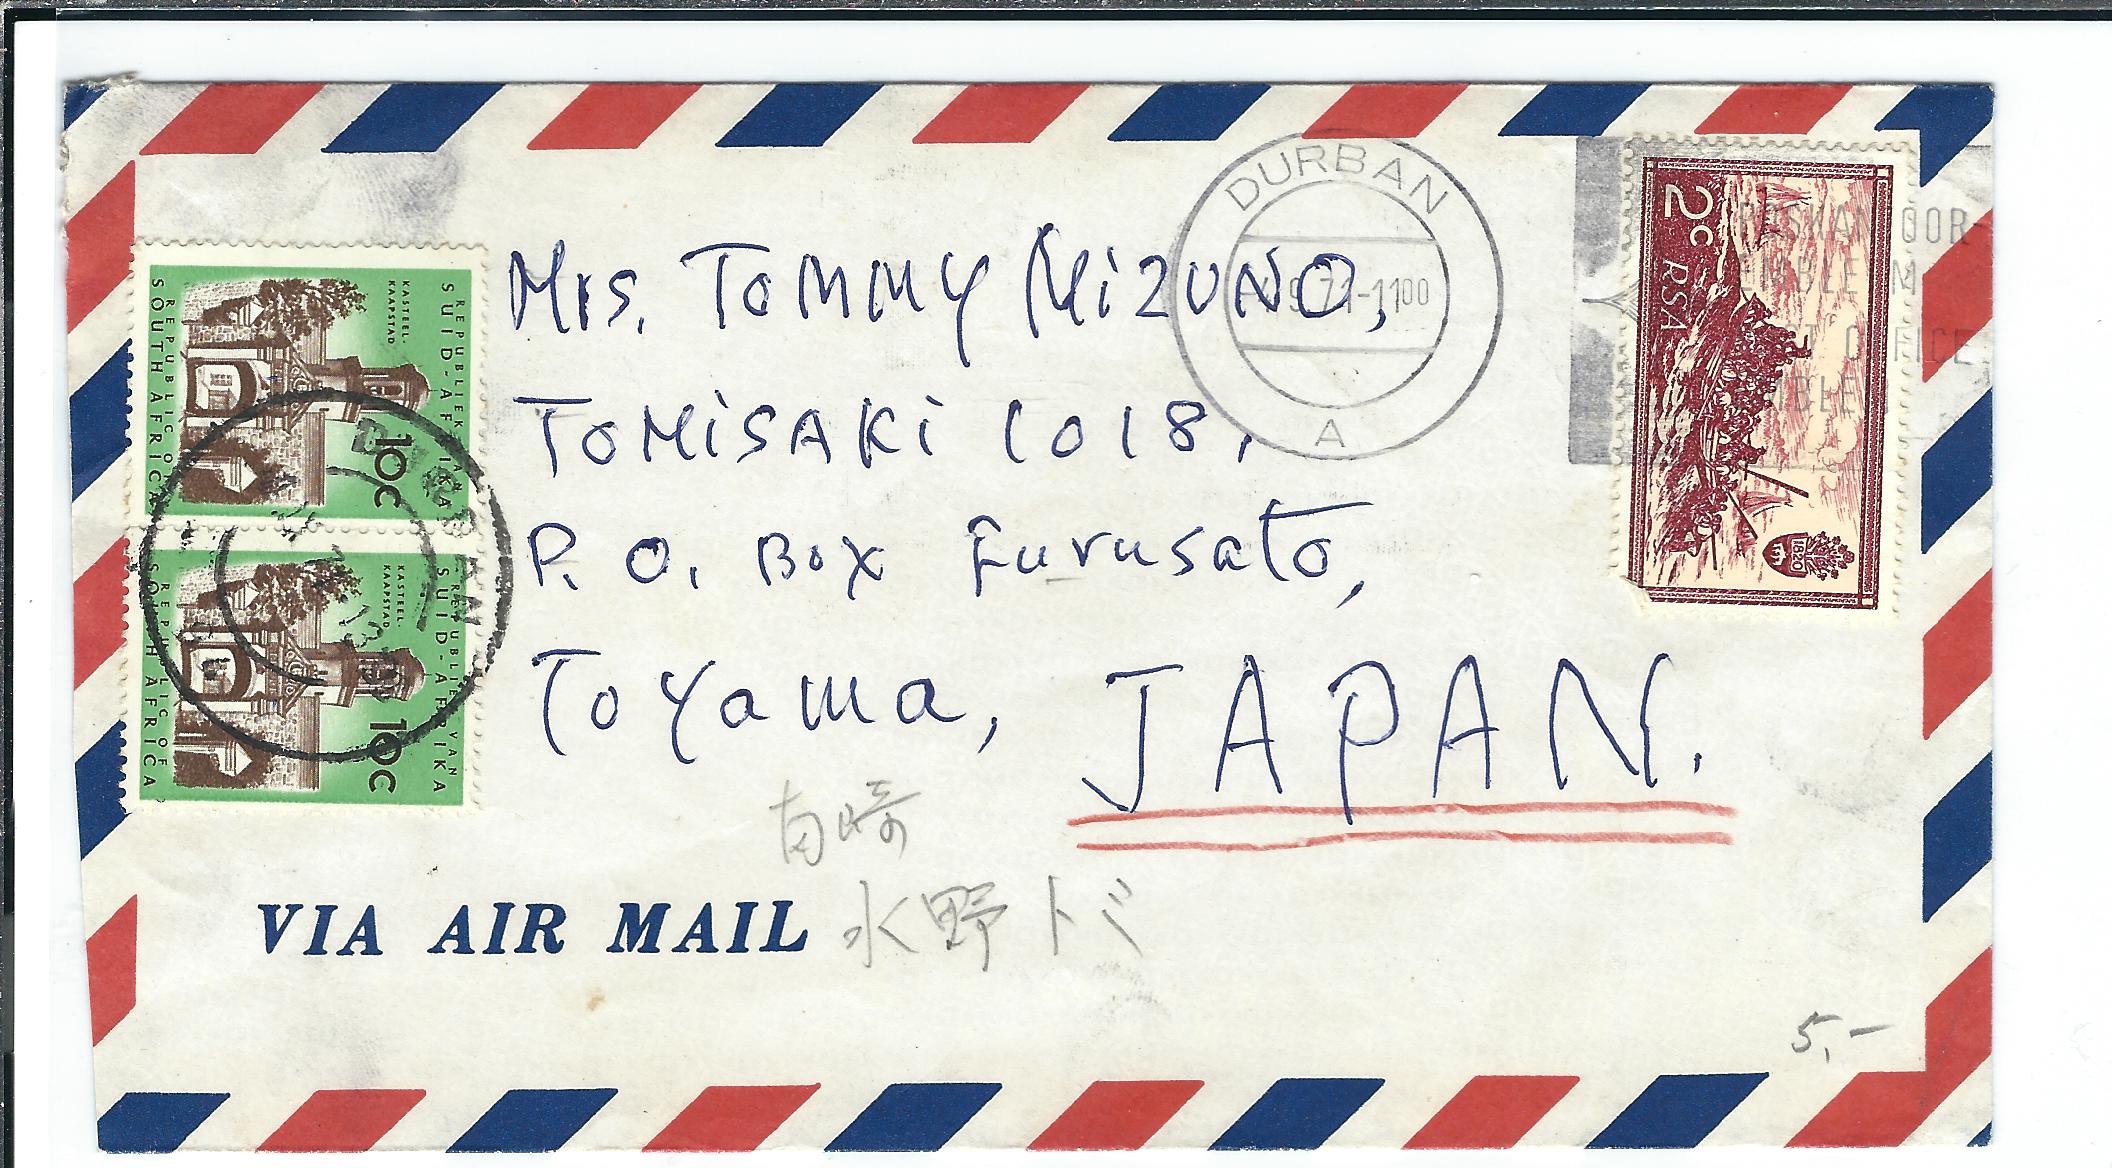 DURBAN
11 00
A
POSKANTOOR
EMBLEEM
POST OFFICE
EMBLEM
2c RSA
1820
REPUBLIEK VAN
SUID-AFRIKA
KASTEEL-
KAAPSTAD
10c
REPUBLIC OF
SOUTH AFRICA
REPUBLIEK VAN
SUID-AFRIKA
KASTEEL-
KAAPSTAD
10c
REPUBLIC OF
SOUTH AFRICA
DURBAN
Mrs. TOMMY MIZUNO,
TOMISAKI 1018,
P. O. BOX Furusato,
Toyama, JAPAN.
水野 トミ
VIA AIR MAIL
5,-